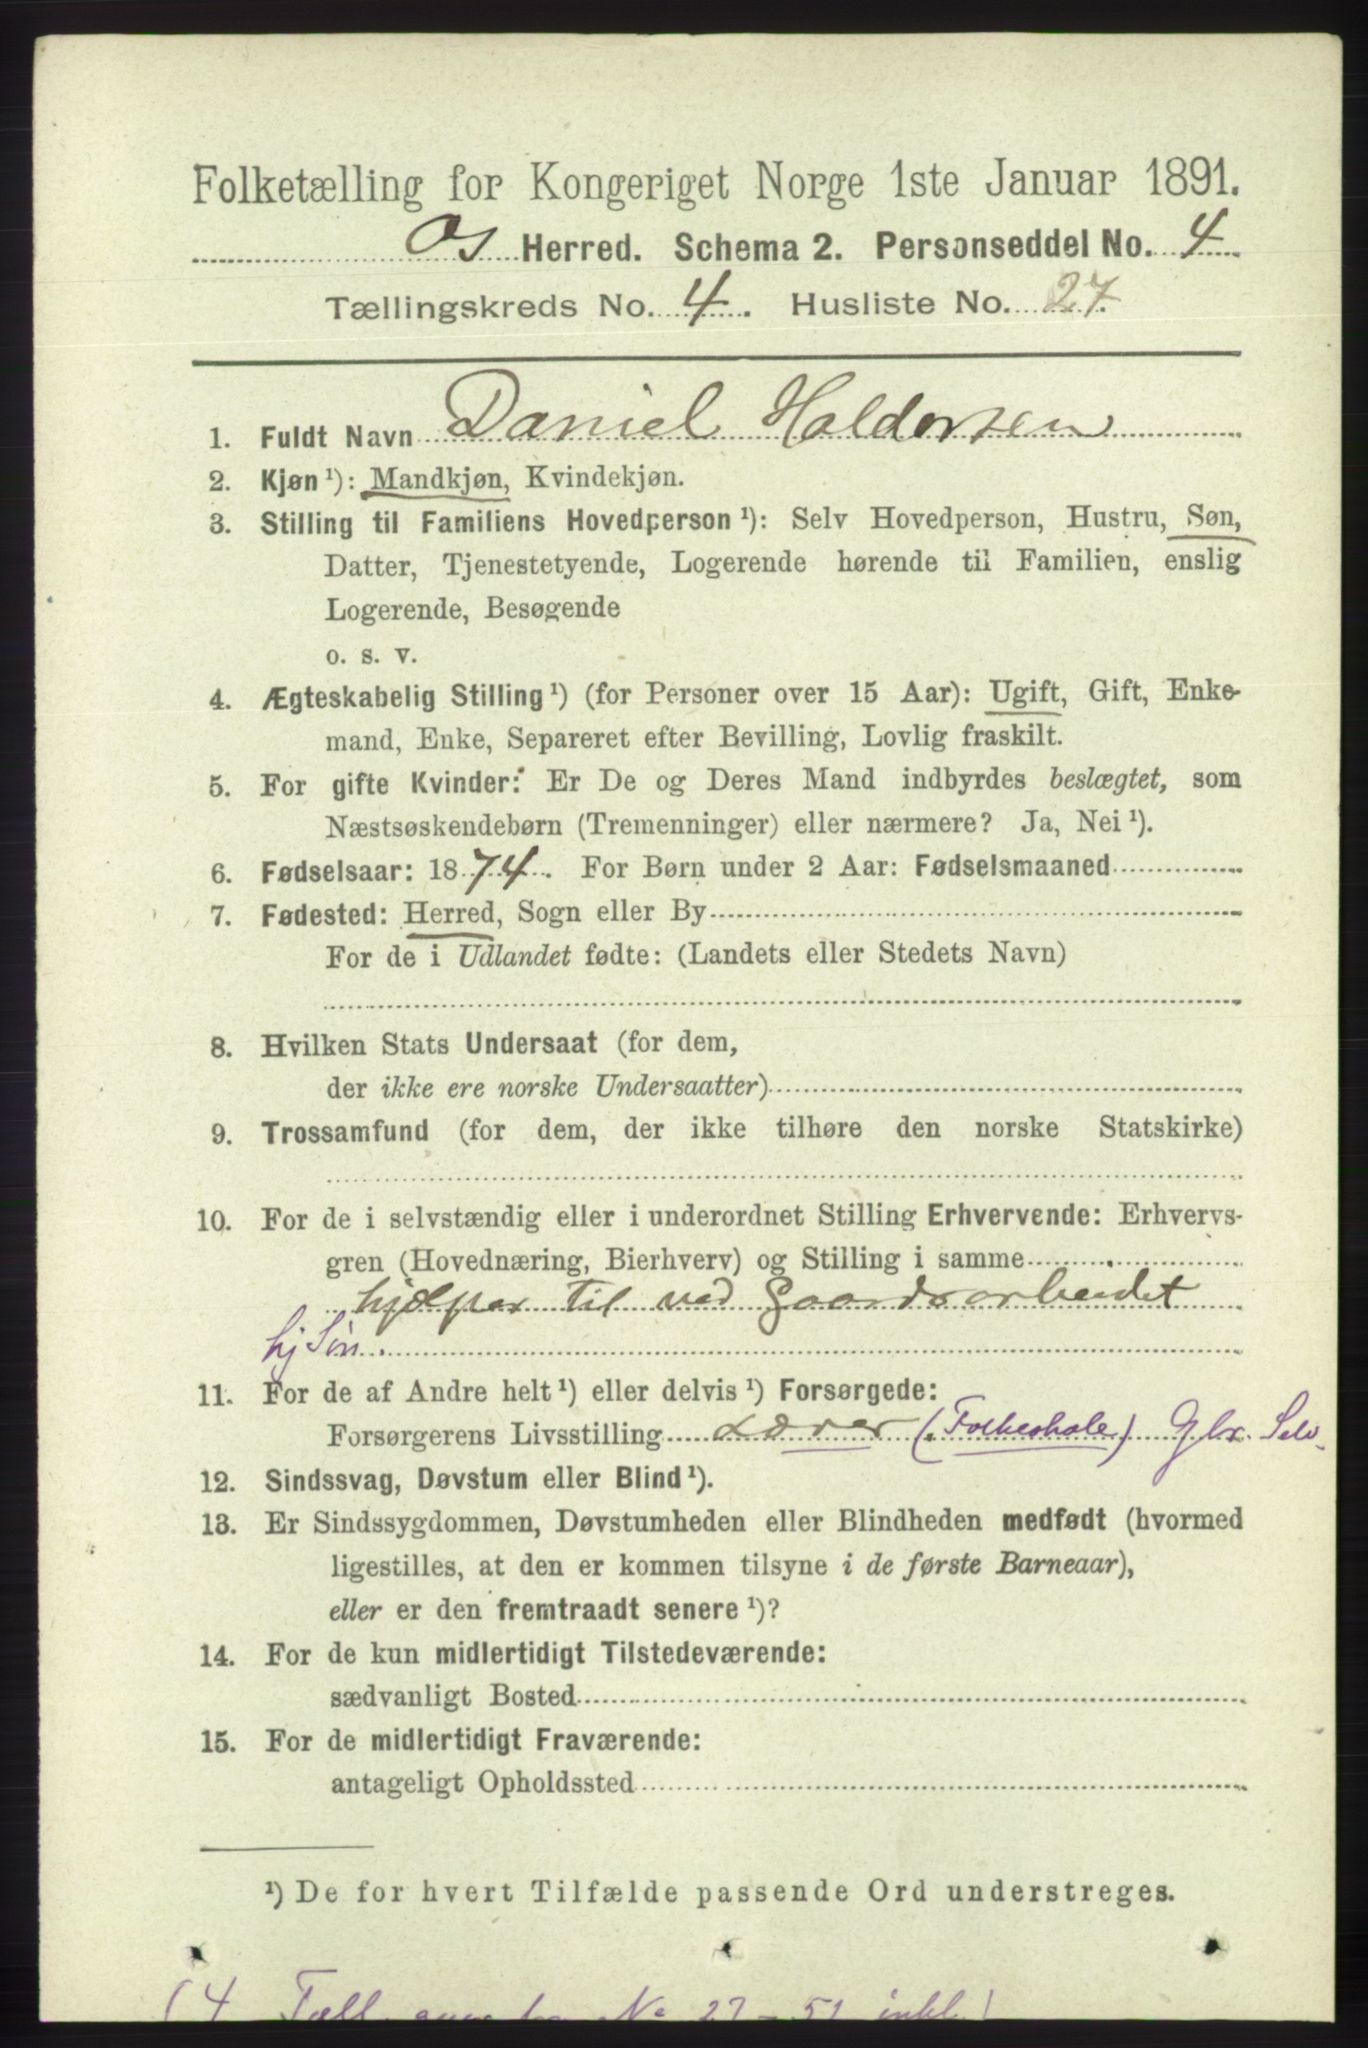 Folketælling for Kongeriget Norge 1ste Januar 1891.
Os Herred. Schema 2. Personseddel No. 4
Tællingskreds No. 4. Husliste No. 27.
1. Fuldt Navn Daniel Haldorsen
2. Kjøn ¹): Mandkjøn, Kvindekjøn.
3. Stilling til Familiens Hovedperson ¹): Selv Hovedperson, Hustru, Søn,
Datter, Tjenestetyende, Logerende hørende til Familien, enslig
Logerende, Besøgende
o. s. v.
4. Ægteskabelig Stilling ¹) (for Personer over 15 Aar): Ugift, Gift, Enke-
mand, Enke, Separeret efter Bevilling, Lovlig fraskilt.
5. For gifte Kvinder: Er De og Deres Mand indbyrdes beslægtet, som
Næstsøskendebørn (Tremenninger) eller nærmere? Ja, Nei ¹).
6. Fødselsaar: 1874. For Børn under 2 Aar: Fødselsmaaned
7. Fødested: Herred, Sogn eller By
For de i Udlandet fødte: (Landets eller Stedets Navn)
8. Hvilken Stats Undersaat (for dem,
der ikke ere norske Undersaatter)
9. Trossamfund (for dem, der ikke tilhøre den norske Statskirke)
10. For de i selvstændig eller i underordnet Stilling Erhvervende: Erhvervs-
gren (Hovednæring, Bierhverv) og Stilling i samme
hjælper til ved Gaardsarbeidet
hj Søn
11. For de af Andre helt ¹) eller delvis ¹) Forsørgede:
Forsørgerens Livsstilling Lærer (Folkeskole) Gbr. Selv
12. Sindssvag, Døvstum eller Blind ¹).
13. Er Sindssygdommen, Døvstumheden eller Blindheden medfødt (hvormed
ligestilles, at den er kommen tilsyne i de første Barneaar),
eller er den fremtraadt senere ¹)?
14. For de kun midlertidigt Tilstedeværende:
sædvanligt Bosted
15. For de midlertidigt Fraværende:
antageligt Opholdssted
¹) De for hvert Tilfælde passende Ord understreges.
(4 No 27 - 51 inkl)